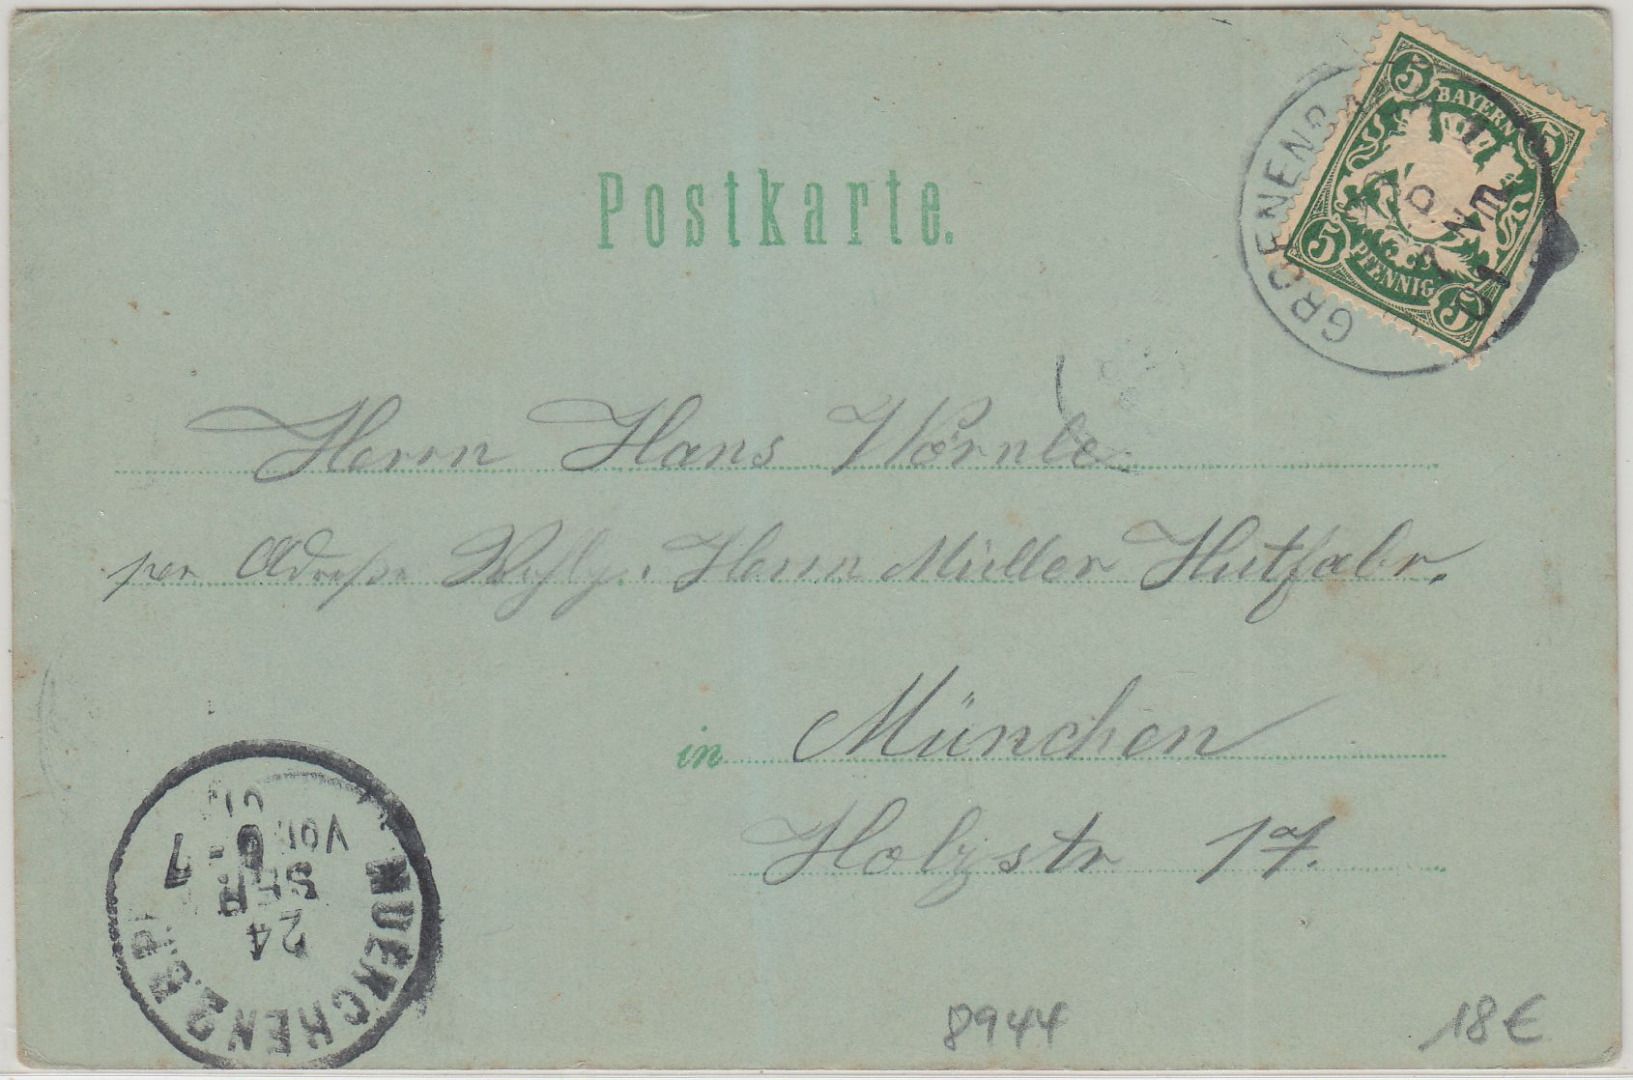 Postkarte.
5 BAYERN 5
5 PFENNIG 5
GROENENBA
Nm
01
Herrn Hans Wörnle
per Adreße Wohlg. Herrn Müller Hutfabr.
in München
Holzstr 17.
MUENCHEN 2. B.P.
24
SEP
VOR 6-7
01
8944
18€